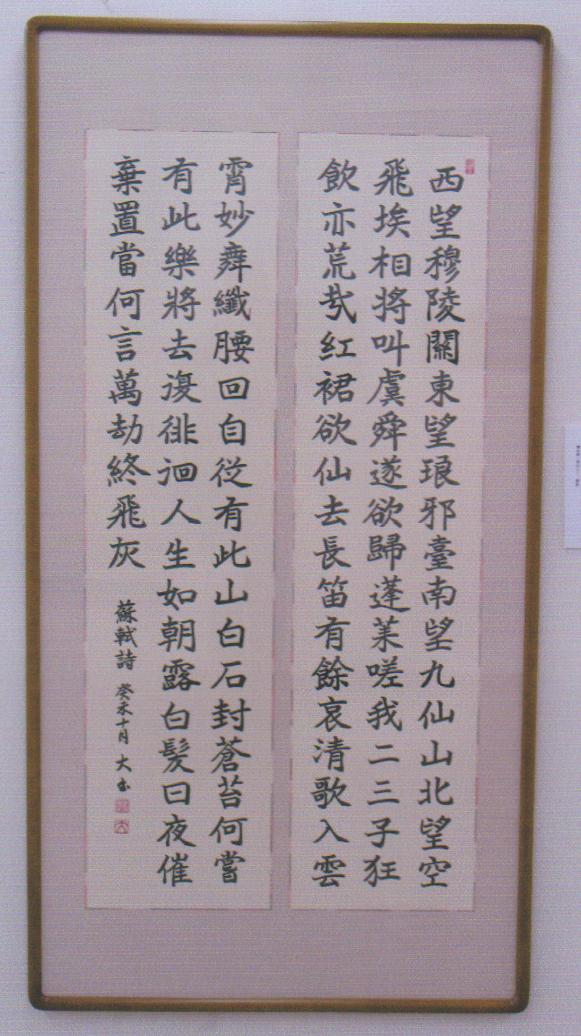 西望穆陵關東望琅邪臺南望九仙山北望空
飛埃相將叫虞舜遂欲歸蓬萊嗟我二三子狂
飲亦荒哉紅裙欲仙去長笛有餘哀清歌入雲
霄妙舞纖腰回自從有此山白石封蒼苔何嘗
有此樂將去復徘徊人生如朝露白髮日夜催
棄置當何言萬劫終飛灰
蘇軾詩 癸未十月 大書